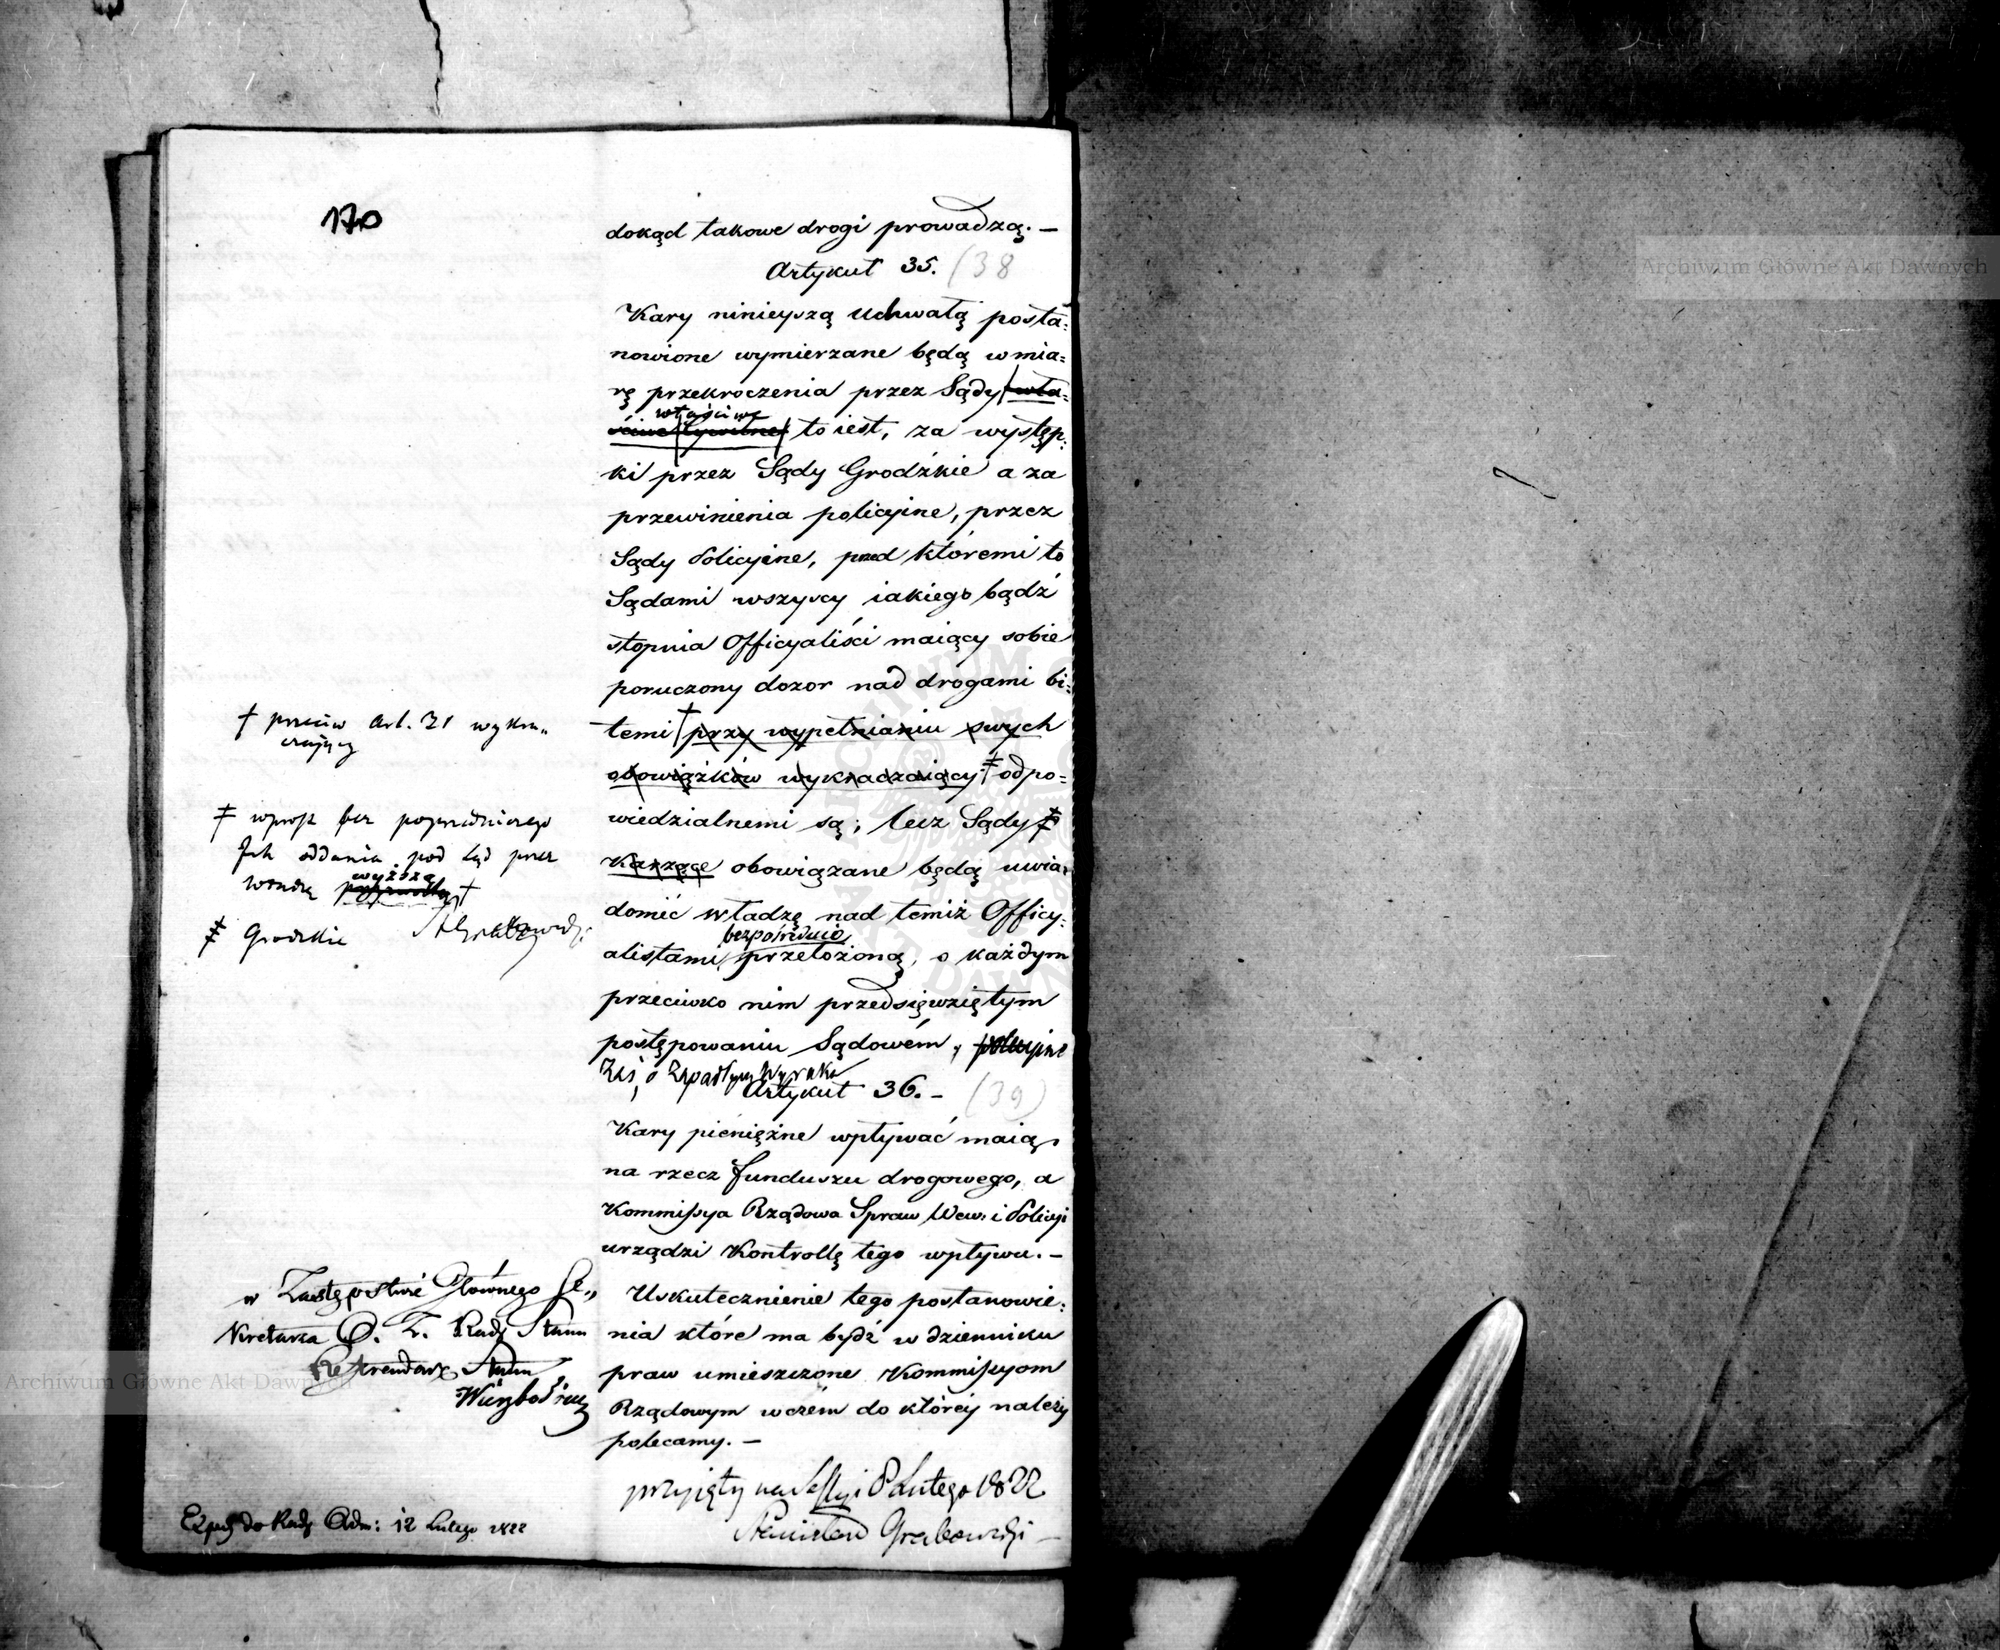 170
dokąd takowe drogi prowadzą. —
Artykuł 35. (38
Kary ninieyszą Uchwałą posta=
nowione wymierzane będą w mia=
rę przekroczenia przez Sądy wła=
właściwe
ściwe Cywilne to iest, za występ=
ki przez Sądy Grodzkie a za
przewinienia policyine, przez
Sądy Policyine, przed któremi to
Sądami wszyscy iakiego bądź
stopnia Officyaliści maiący sobie
poruczony dozor nad drogami bi=
temi † przy wypełnianiu swych
obowiązków wykraczaiący ‡ odpo=
wiedzialnemi są; lecz Sądy
Karzące obowiązane będą uwia=
domić władzę nad temiż Officy=
bezpośrednio
alistami przełożoną, o każdym
przeciwko nim przedsięwziętym
postępowaniu Sądowém, policyine
Zaś, o Zapadłym Wyroku
Artykuł 36. — (39)
Kary pieniężne wpływać maią
na rzecz funduszu drogowego, a
Kommissya Rządowa Spraw Wew: i Policyi
urządzi Kontrollę tego wpływu. —
Uskutecznienie tego postanowie=
nia które ma bydź w dzienniku
praw umieszczone Kommissyom
Rządowym w czém do któréy należy
polecamy. —
przyięty na Sessyi 8 Lutego 1822
Stanisław Grabowski —
† przeciw Art. 31 wykra„
czaiący
‡ wprost bez poprzedniczego
Ich oddania pod Sąd przez
wyższą
władzę †
Grodzkie
Grabowski
w Zastępstwie Głównego Se„
kretarza O. Z. Rady Stanu
Referendarz Stanu
Exped. do Rady Adm: 12 Lutego 1822
Archiwum Główne Akt Dawnych
Archiwum Główne Akt Dawnych